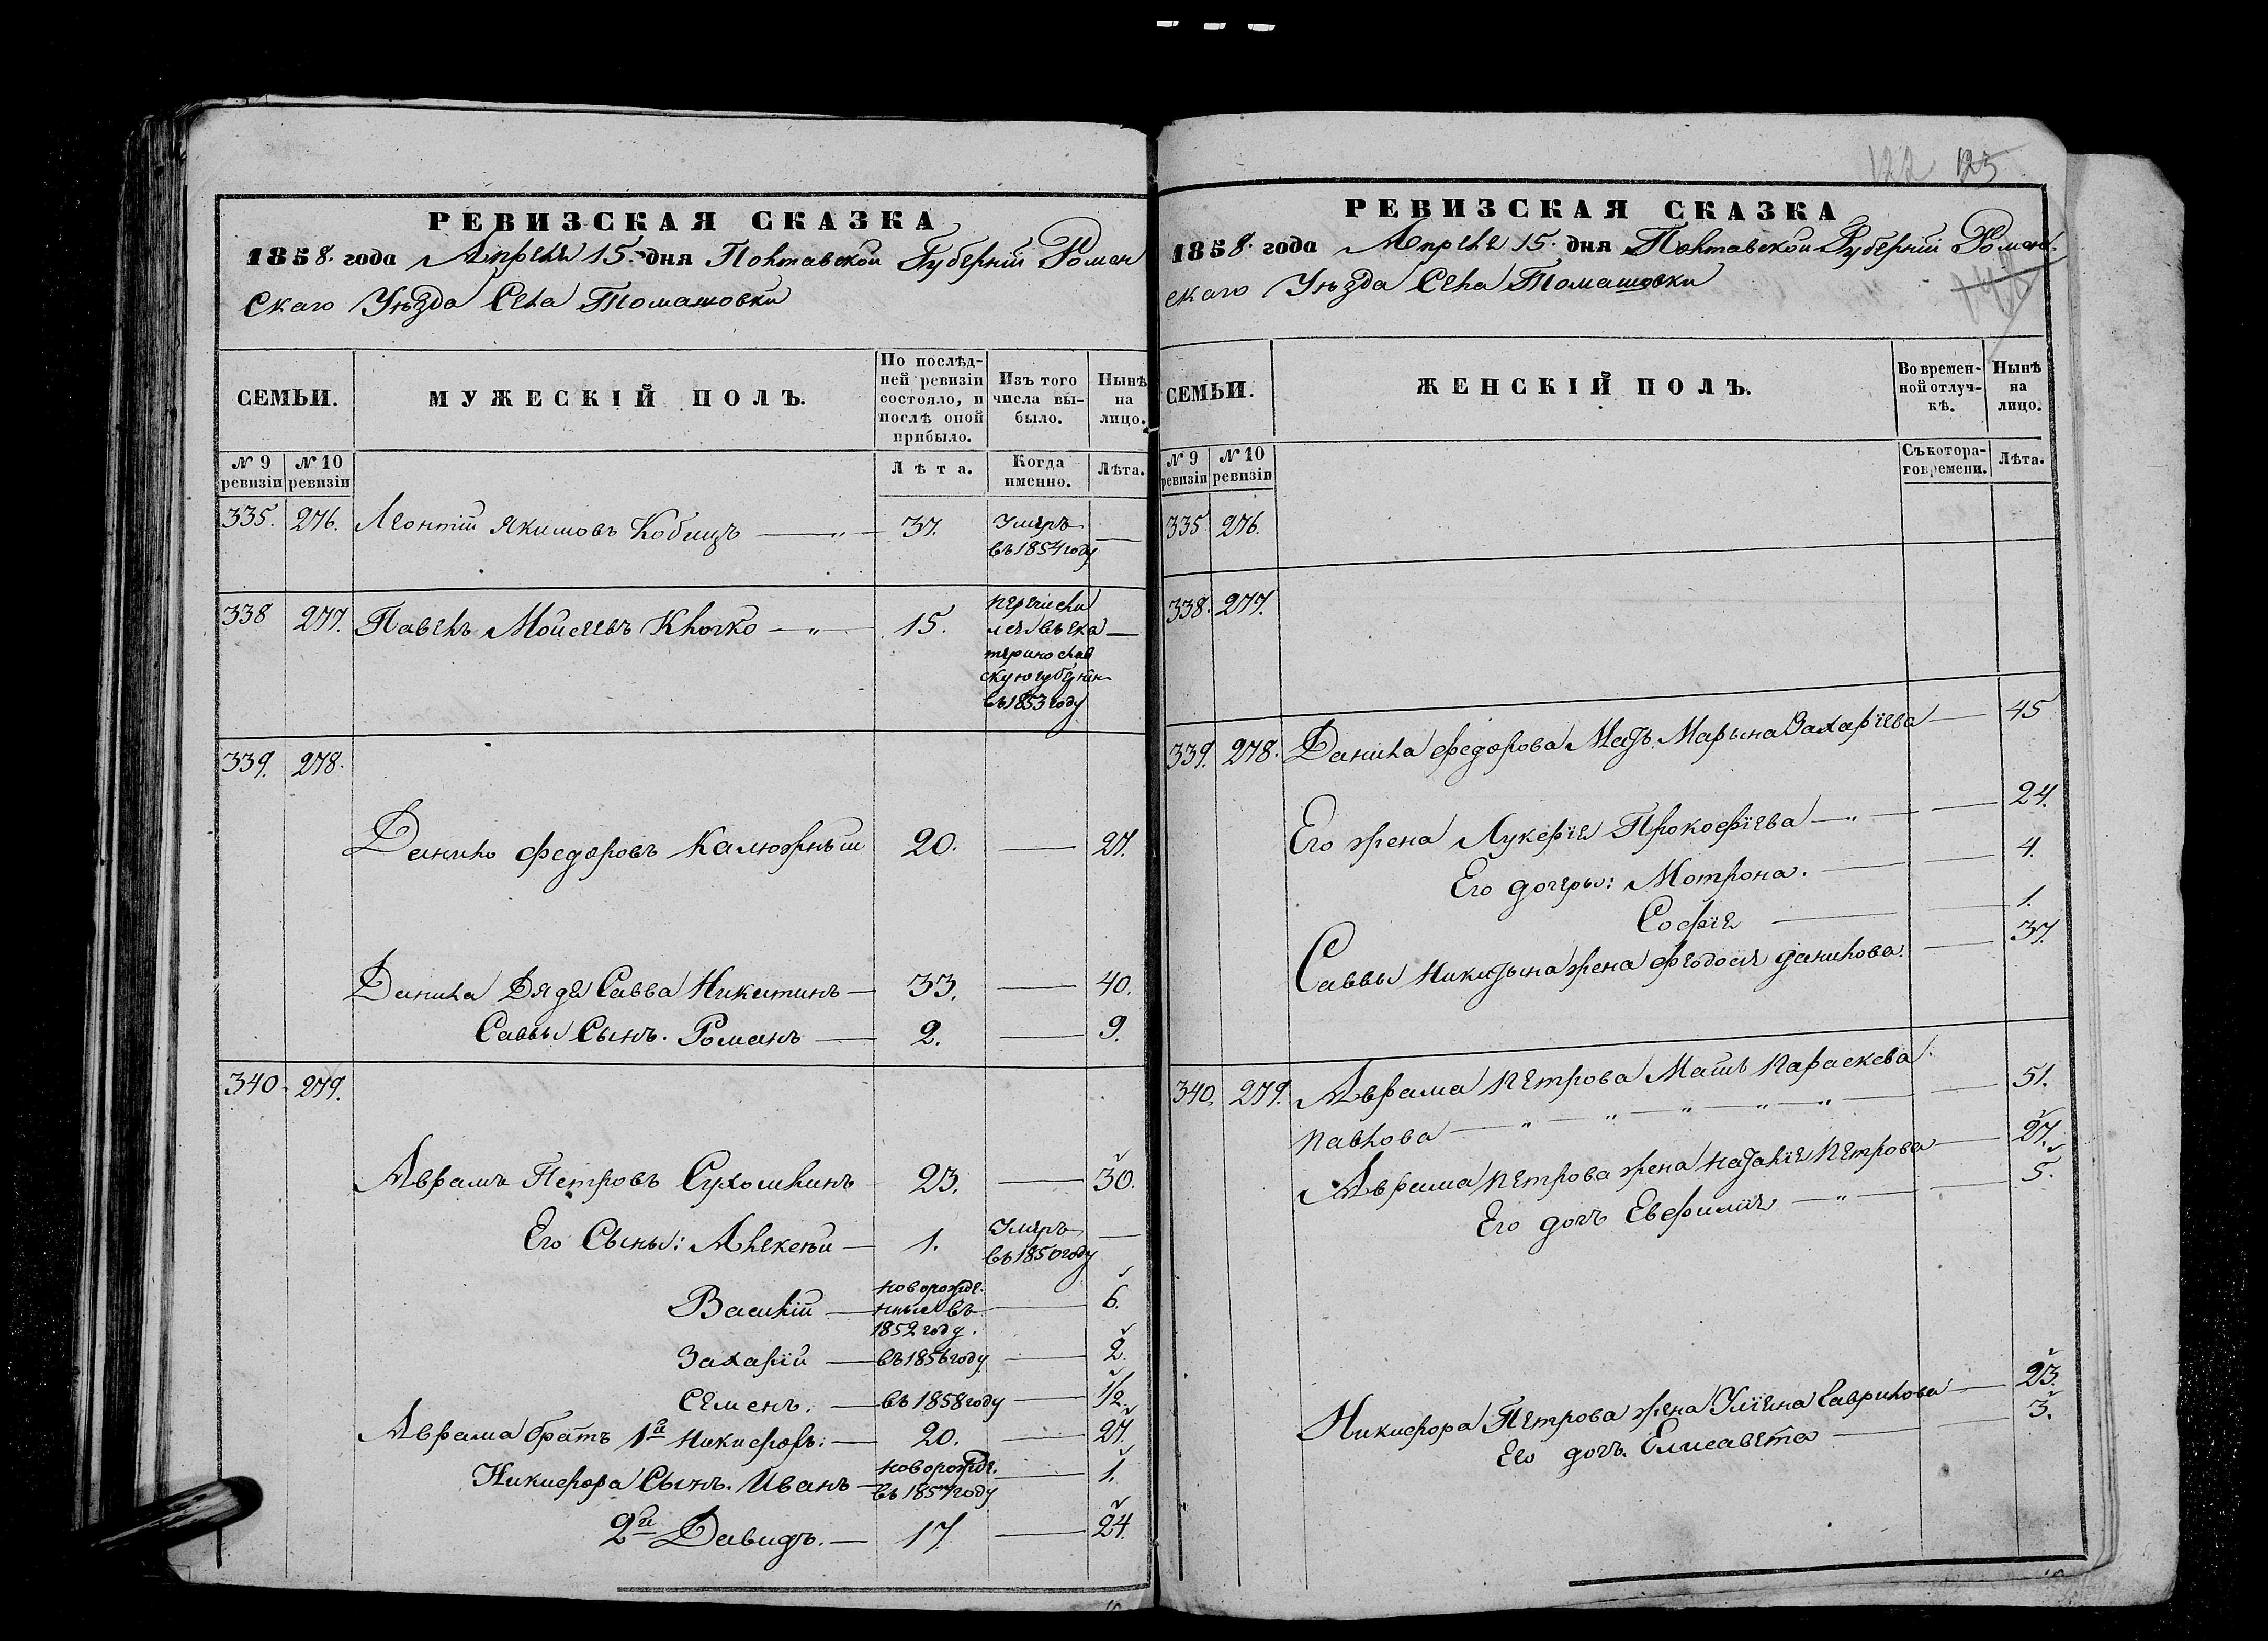 РЕВИЗСКАЯ СКАЗКА
1858. года Апреля 15. дня Полтавской Губерніи Роман
скаго Уѣзда Села Томашовки
СЕМЬИ.
МУЖЕСКІЙ ПОЛЪ.
По послѣд-
ней ревизіи
состояло, и
послѣ оной
прибыло.
Изъ того
числа вы-
было.
Нынѣ
на
лицо.
№ 9
ревизіи
№ 10
ревизіи
Лѣта.
Когда
именно.
Лѣта.
335. 276. Леонтій Якимовъ Кобицъ 37. Умеръ
въ 1854 году
338 277. Павелъ Моисеевъ Клочко 15. перечисли
лся въ ека
теринослав
скую губерн
въ 1853 году
339. 278.
Данило Федоровъ Калюжный 20. 27.
Данила Дядя Савва Никитинъ 33. 40.
Саввы Сынъ. Романъ 2. 9.
340. 279.
Аврамъ Петровъ Сухомлинъ 23. 30.
Его Сыны: Алексѣй 1. Умеръ
въ 1850 году
Василій новорожде.
нные въ
1852 году. 6.
Захарій въ 1856 году 2.
Семенъ. въ 1858 году 1/2
Аврама братъ 1й Никифоръ. 20. 27.
Никифора Сынъ. Иванъ новорожде.
въ 1857 году 1.
2й Давидъ. 17. 24.
122 123
РЕВИЗСКАЯ СКАЗКА
1858. года Апреля 15. дня Полтавской Губерніи Роман
скаго Уѣзда Села Томашовки
СЕМЬИ.
ЖЕНСКІЙ ПОЛЪ.
Во времен-
ной отлуч-
кѣ.
Нынѣ
на
лицо.
№ 9
ревизіи
№ 10
ревизіи
Съ котора-
го времени.
Лѣта.
335 276.
338. 277.
339. 278. Данила Федорова Мать Марына Захаріева 45
Его жена Лукерія Прокофіева 24.
Его дочеры: Мотрона. 4.
Софія 1.
Саввы Никитына жена Феодосія данилова. 37.
340. 279. Аврама петрова Мать параскева
павлова 51.
Аврама петрова жена наталія петрова 27.
Его дочъ Евфимія 5.
Никифора Петрова жена Уліяна Гаврилова 23.
Его дочъ. Елисавета 3.